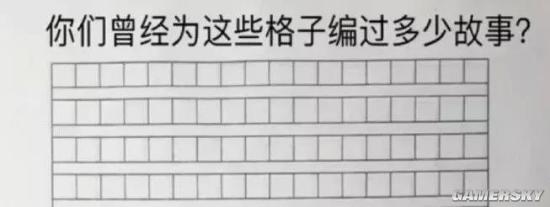 你们曾经为这些格子编过多少故事?
GAMERSKY